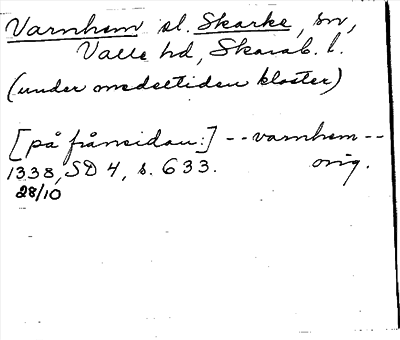 Varnhem sl. Skarke, sn,
Valle hd, Skarab. l.
(under medeltiden kloster)
[på frånsidan:] -- varnhem --
1338, SD 4, s. 633. orig.
28/10